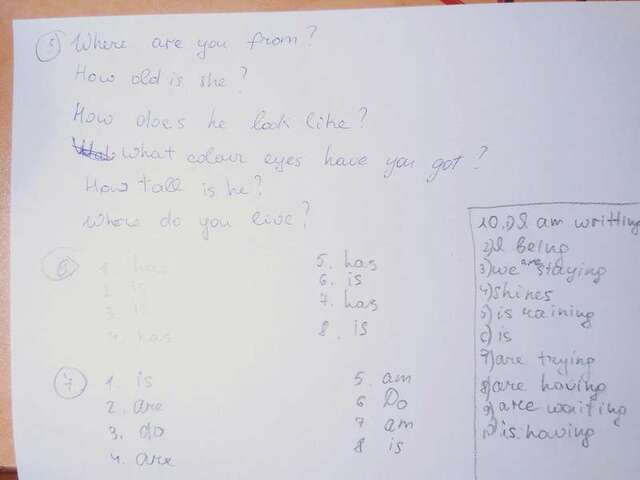 5 Where are you from?
How old is she?
How does he look like?
What colour eyes have you got?
How tall is he?
Where do you live?
6
1. has
2. is
3. is
4. has
5. has
6. is
7. has
8. is
7
1. is
2. are
3. do
4. are
5. am
6 Do
7 am
8 is
10. 1) I am writting
2) I being
3) we are staying
4) shines
5) is raining
6) is
7) are trying
8) are having
9) are waiting
10) is having